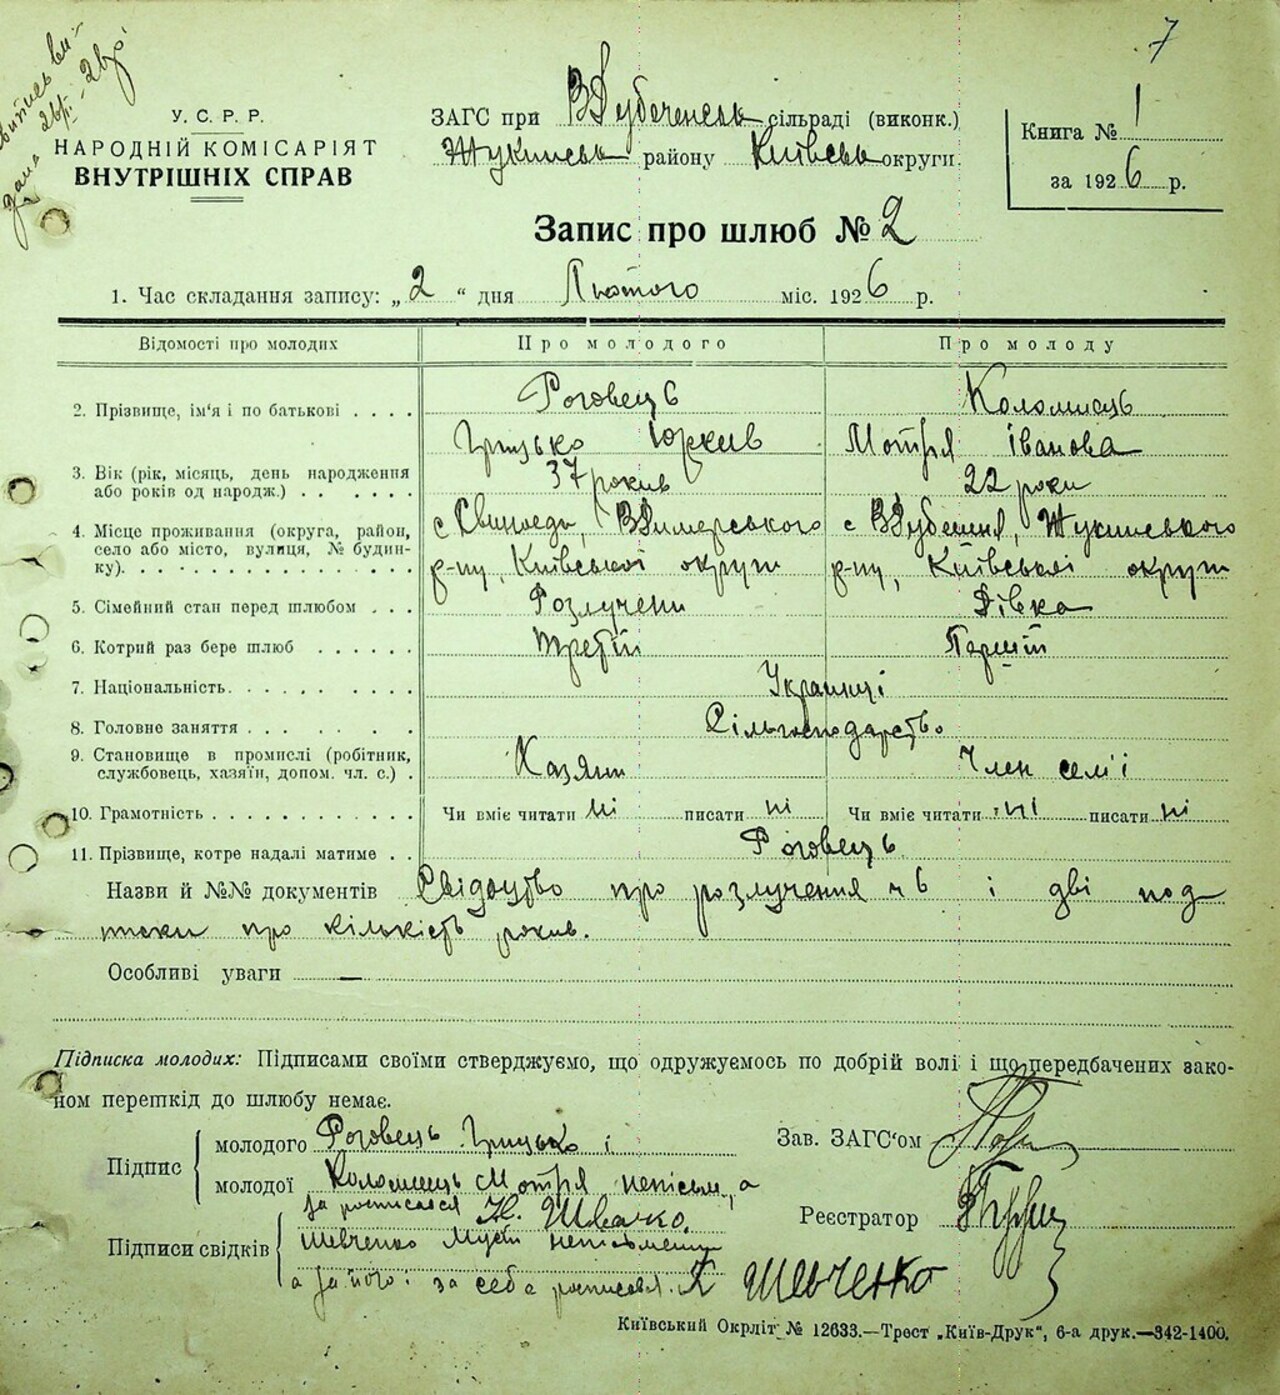 7
У. С. Р. Р.
НАРОДНІЙ КОМІСАРІЯТ
ВНУТРІШНІХ СПРАВ
ЗАГС при ВДубеченськ сільраді (виконк.)
Жукинськ району Київськ округи
Книга № 1
за 1926 р.
Запис про шлюб № 2
1. Час складання запису: „2“ дня Лютого міс. 1926 р.
Відомості про молодих Про молодого Про молоду
2. Прізвище, ім'я і по батькові . . . . Роговець Коломиєць
Грицько Юрків Мотря Іванова
3. Вік (рік, місяць, день народження або років од народж.) . . . . . . 37 років 22 роки
4. Місце проживання (округа, район, с Свиноєди, ВДимерського с ВДубечня, Жукинського
село або місто, вулиця, № будин-
ку). . . . . . . . . . . . . . . р-ну, Київської округи р-ну, Київської округи
5. Сімейний стан перед шлюбом . . . Розлучени Дівка
6. Котрий раз бере шлюб . . . . . . Третій Перший
7. Національність. . . . . . . . . . Українці
8. Головне заняття . . . . . . . . . Сільгосподарство
9. Становище в промислі (робітник,
службовець, хазяїн, допом. чл. с.) . Хазяин Член семії
10. Грамотність . . . . . . . . . . . . Чи вміє читати ні писати ні Чи вміє читати ні писати ні
11. Прізвище, котре надалі матиме . . Роговець
Назви й №№ документів Свідоцтво про розлучення ч 6 і дві под
писки про кількість років.
Особливі уваги —
Підписка молодих: Підписами своїми стверджуємо, що одружуємось по добрій волі і що передбачених зако-
ном перешкід до шлюбу немає.
Підпис
молодого Роговець Грицько і
молодої Коломиєць Мотря неписьм, а
за росписался Н. Швачко.
Зав. ЗАГС'ом
Реєстратор
Підписи свідків Шевченко неписьменни
а за його і за себа росписався. К Шевченко
Київський Окрліт № 12633.—Трест „Київ-Друк“, 6-а друк.—342-1400.